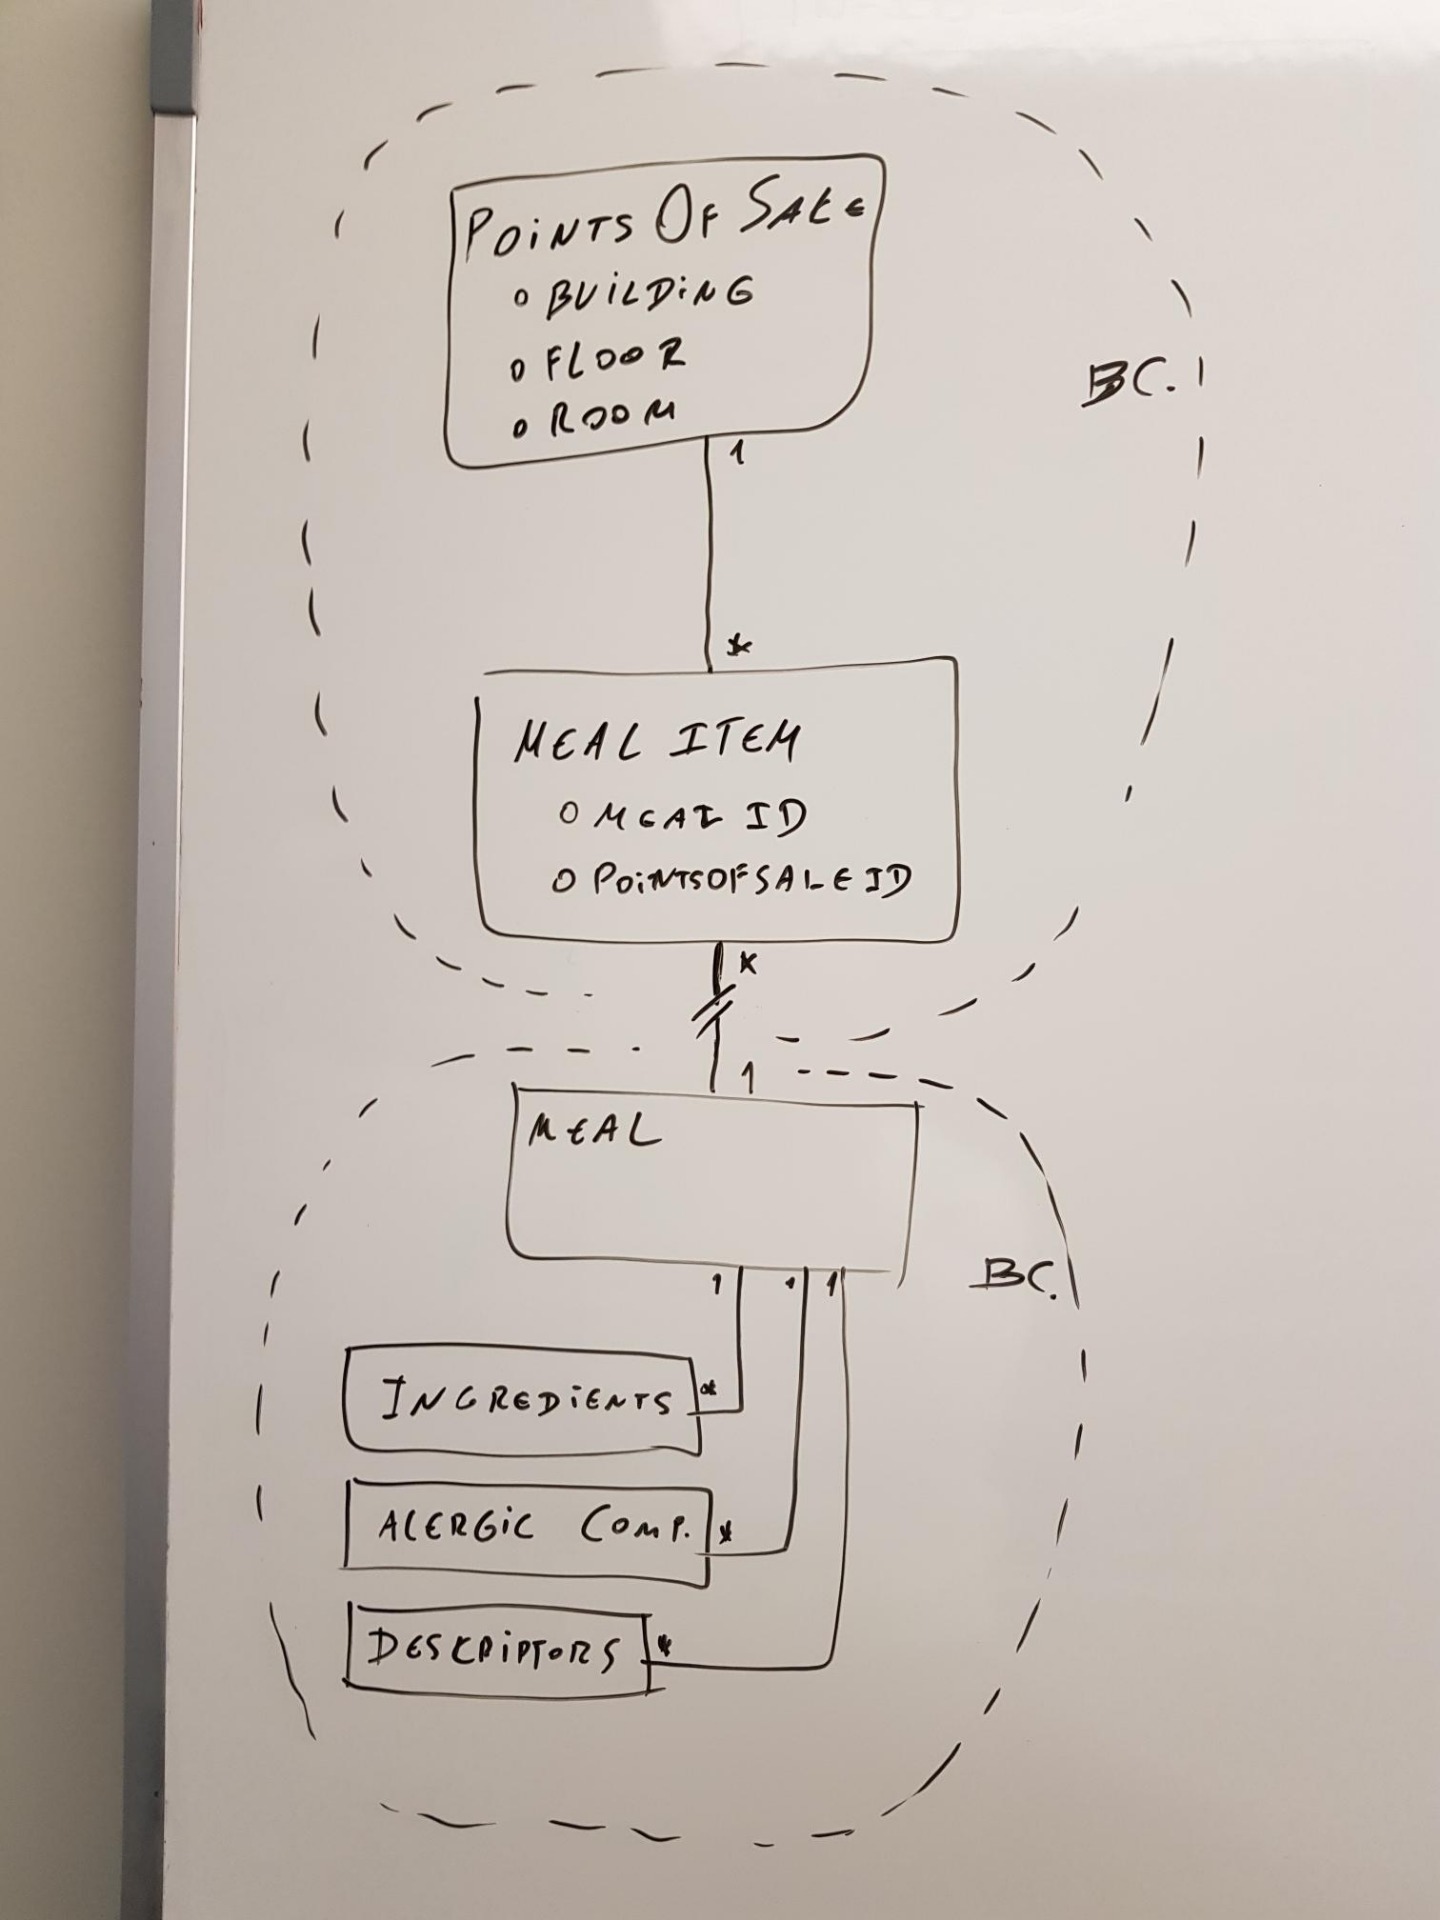 POINTS OF SALE
o BUILDING
o FLOOR
o ROOM
BC.
1
*
MEAL ITEM
o MEAL ID
o POINTSOFSALEID
*
1
MEAL
BC.
1 1 1
INGREDIENTS *
ALERGIC COMP. *
DESCRIPTORS *